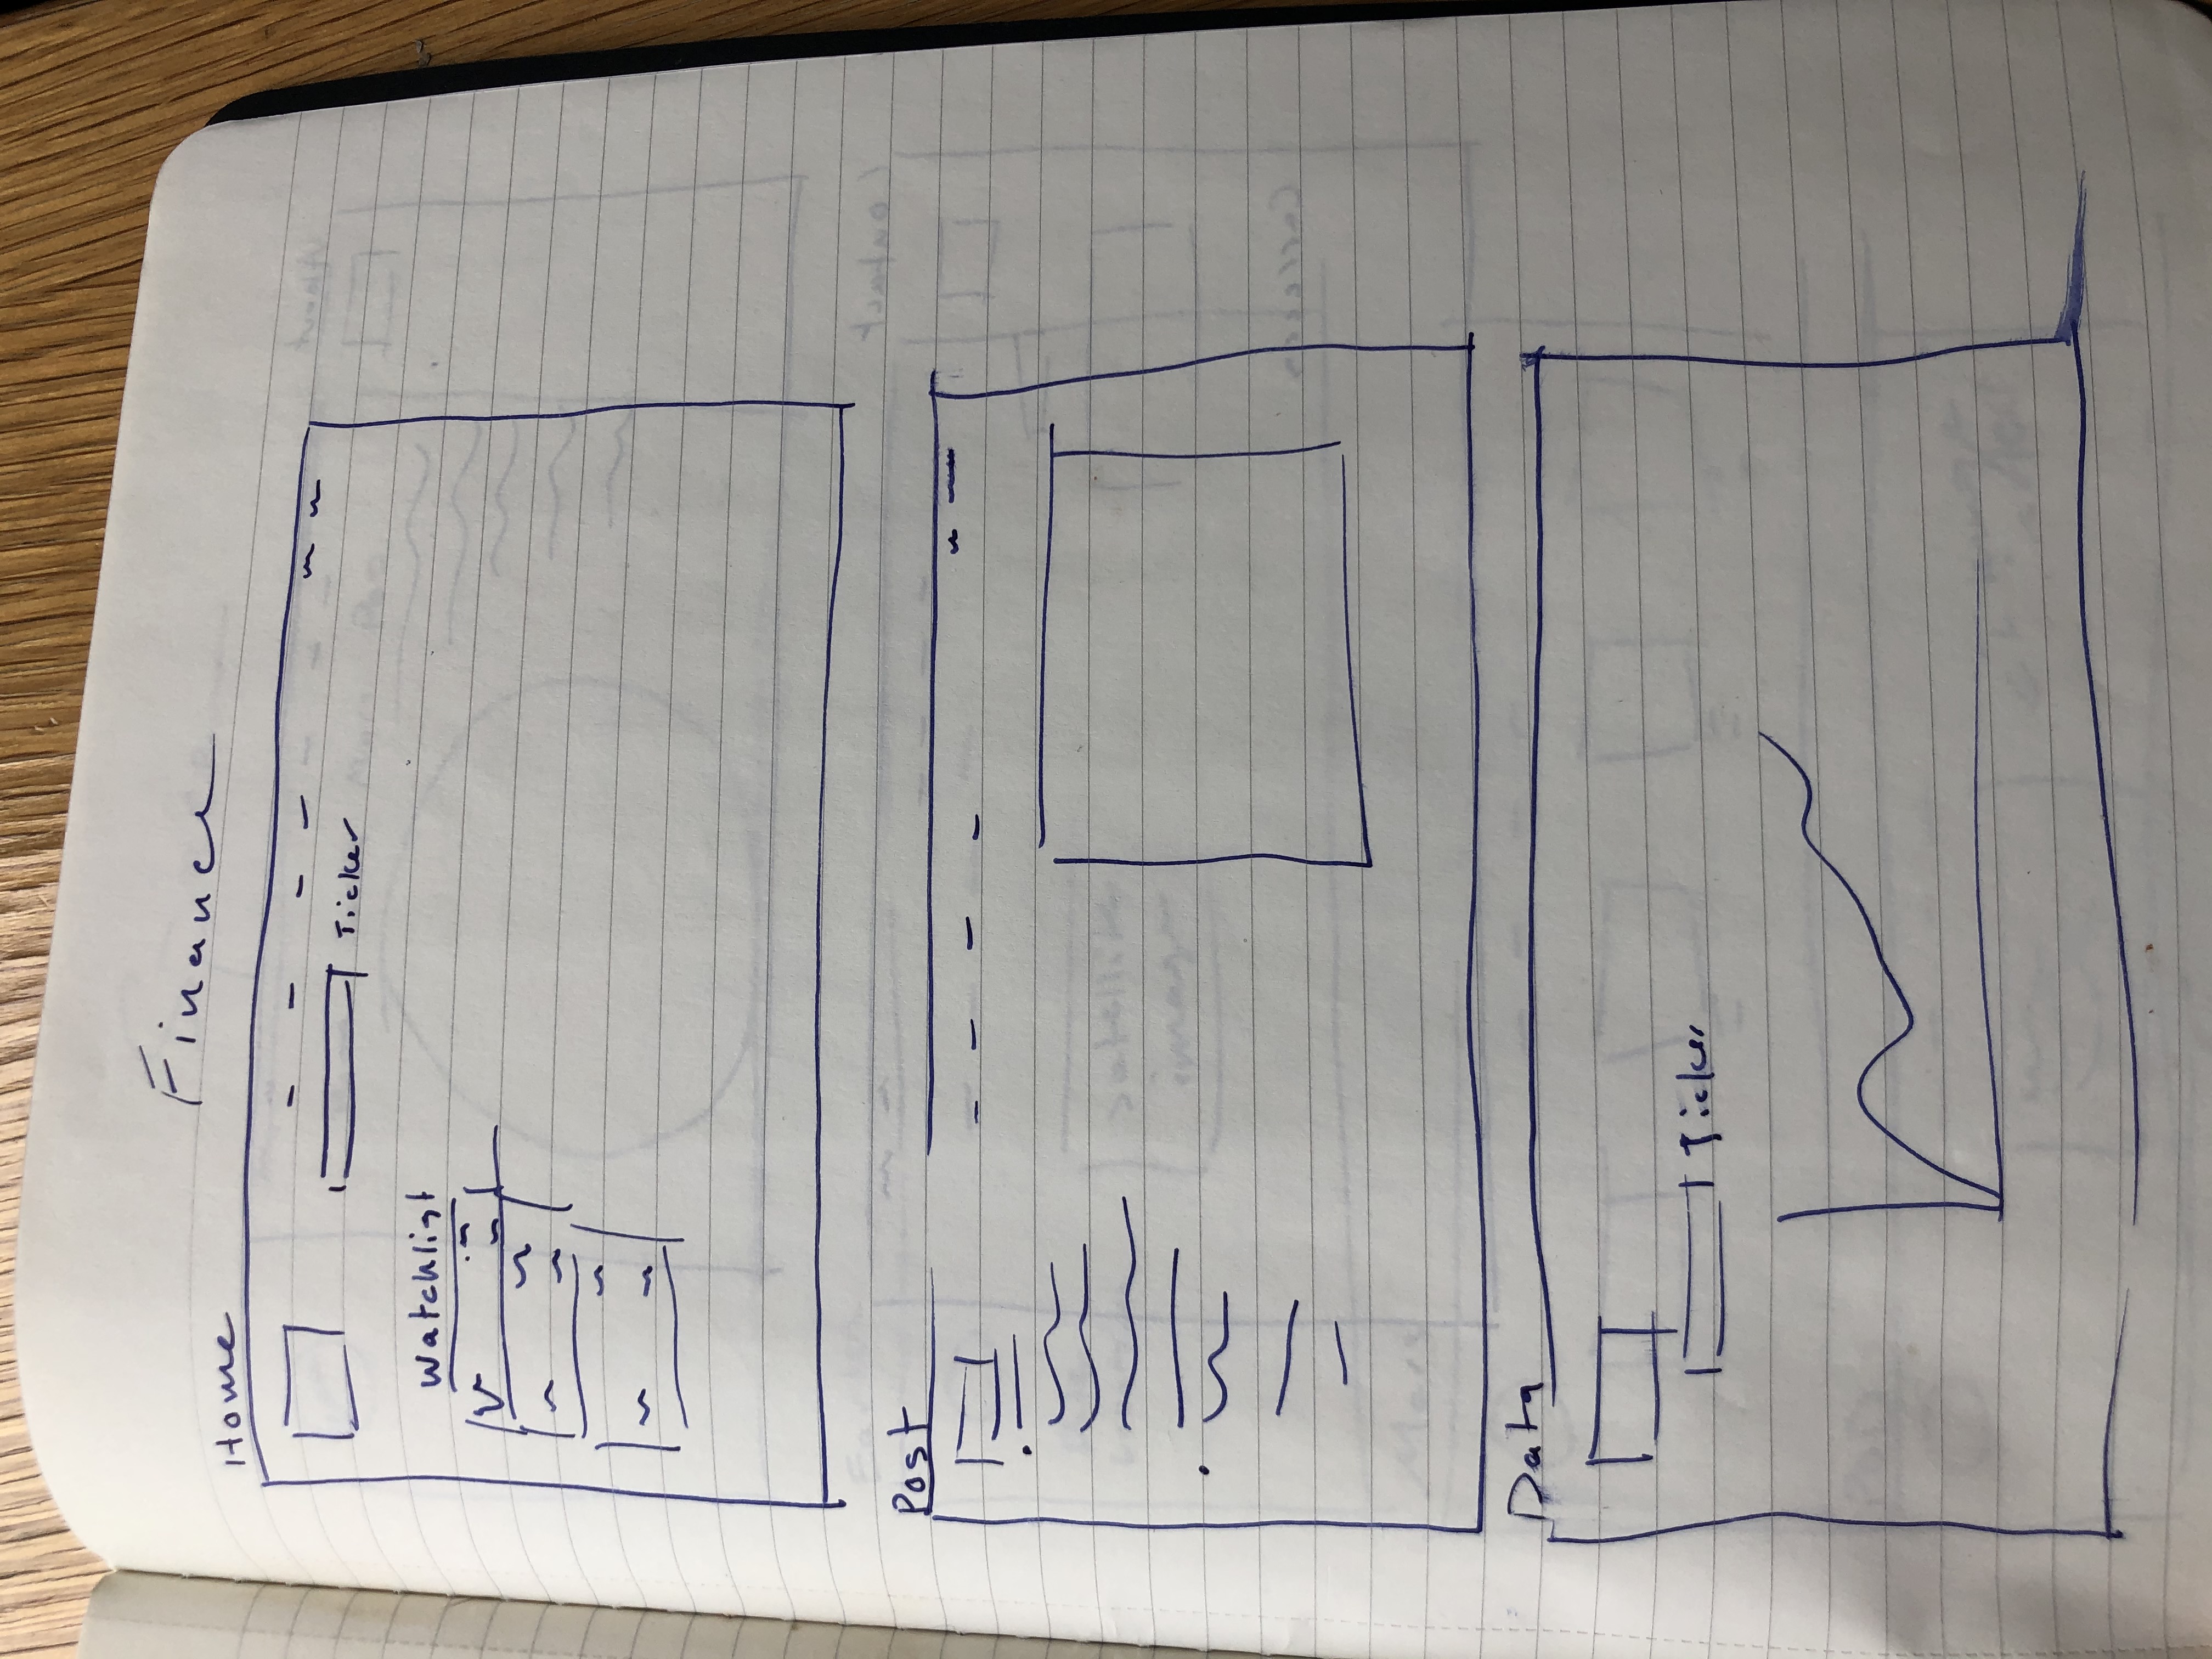 Finance
Home
Ticker
Watchlist
Post
Data
Ticker